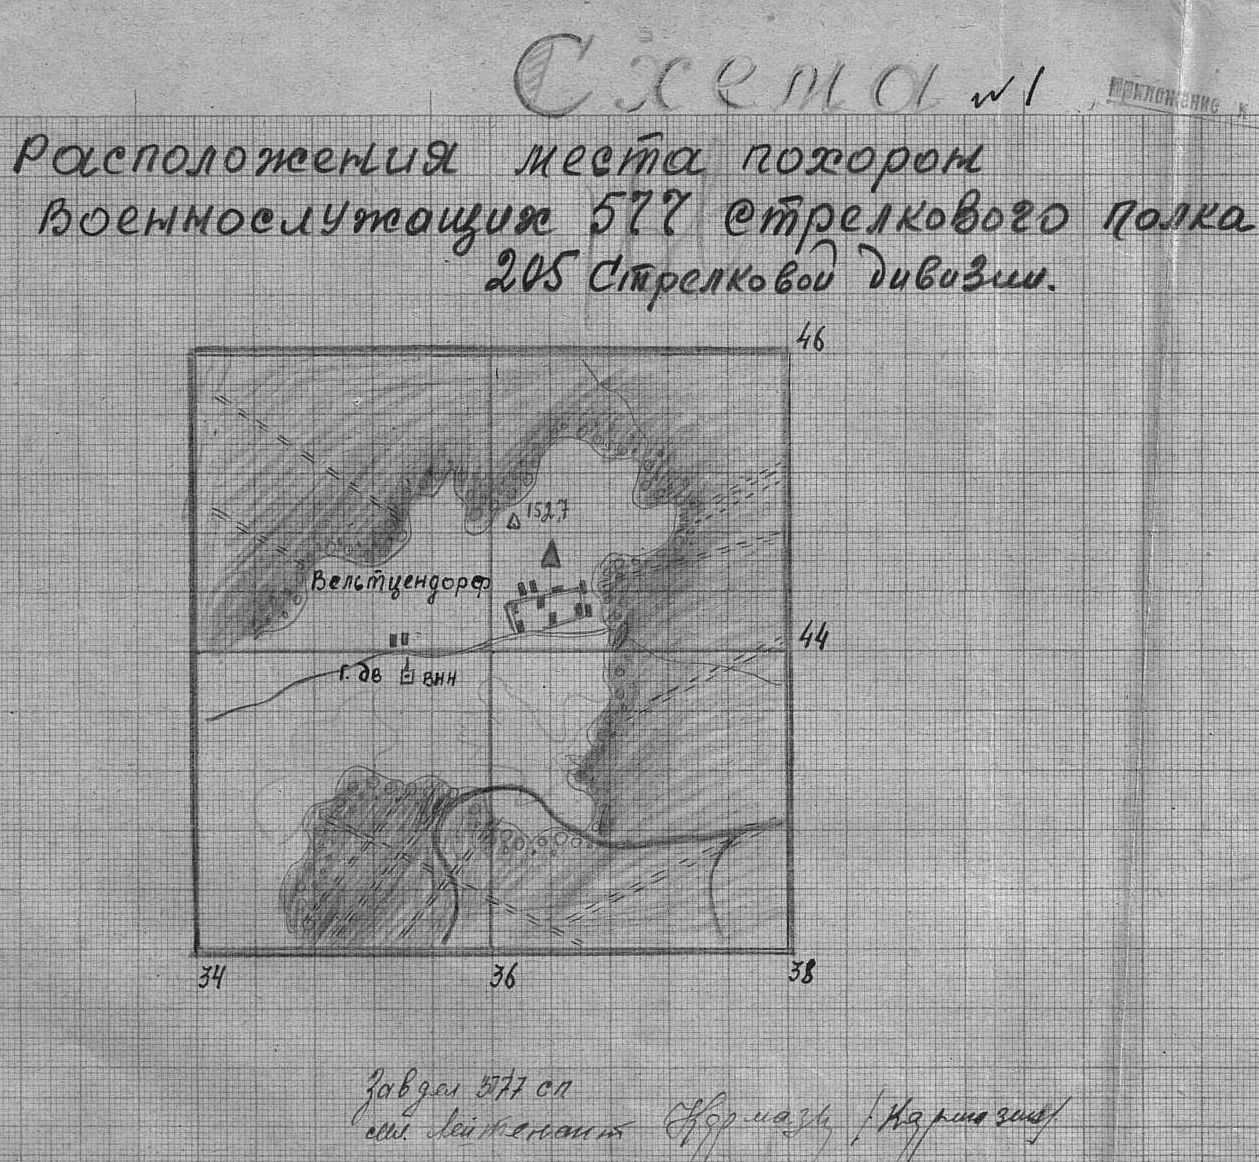 Схема №1
приложение к
Расположения места похорон
Военнослужащих 577 Стрелкового полка
205 Стрелковой дивизии.
46
152,7
Вельтцендорф
44
г. дв внн
34 36 38
Завдел 577 сп
мл. лейтенант Кармазин /Кармазин/